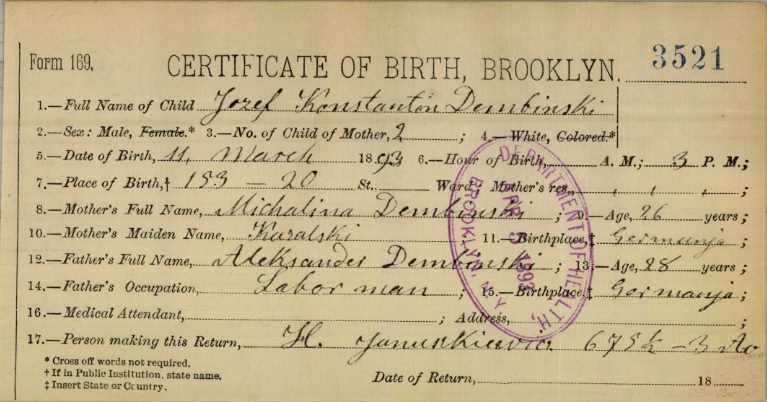 Form 169.
CERTIFICATE OF BIRTH, BROOKLYN.
3521
1.—Full Name of Child Jozef Konstanton Dembinski
2.—Sex: Male, Female.* 3.—No. of Child of Mother, 2 ; 4.—White, Colored.*
5.—Date of Birth, 11, March 1893 6.—Hour of Birth, A. M.; 3 P. M.;
7.—Place of Birth,† 153 — 20 St. Ward, Mother's res., , , ;
8.—Mother's Full Name, Michalina Dembinski ; 9.—Age, 26 years;
10.—Mother's Maiden Name, Kazalski 11.—Birthplace,‡ Germanja;
12.—Father's Full Name, Aleksander Dembinski ; 13.—Age, 28 years;
14.—Father's Occupation, Labor man ; 15.—Birthplace,‡ Germanja;
16.—Medical Attendant, ; Address, ;
17.—Person making this Return, H. Januskiewicz 675½ — 3 Av
* Cross off words not required.
† If in Public Institution, state name.
‡ Insert State or Country.
Date of Return, 18
DEPARTMENT OF HEALTH,
APR 5 1893
BROOKLYN N.Y.